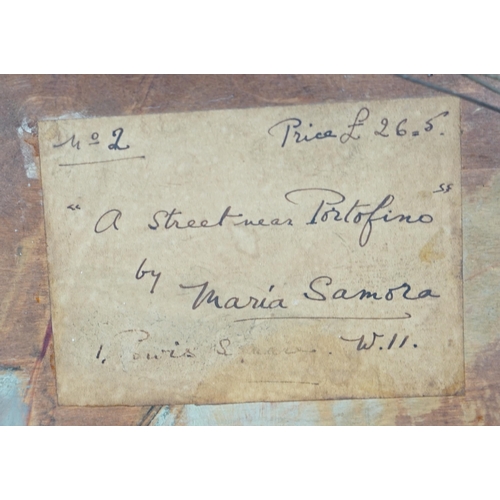 No 2 Price £ 26.5.
"A Street near Portofino"
by
Maria Samora
1, Powis Square. W.11.